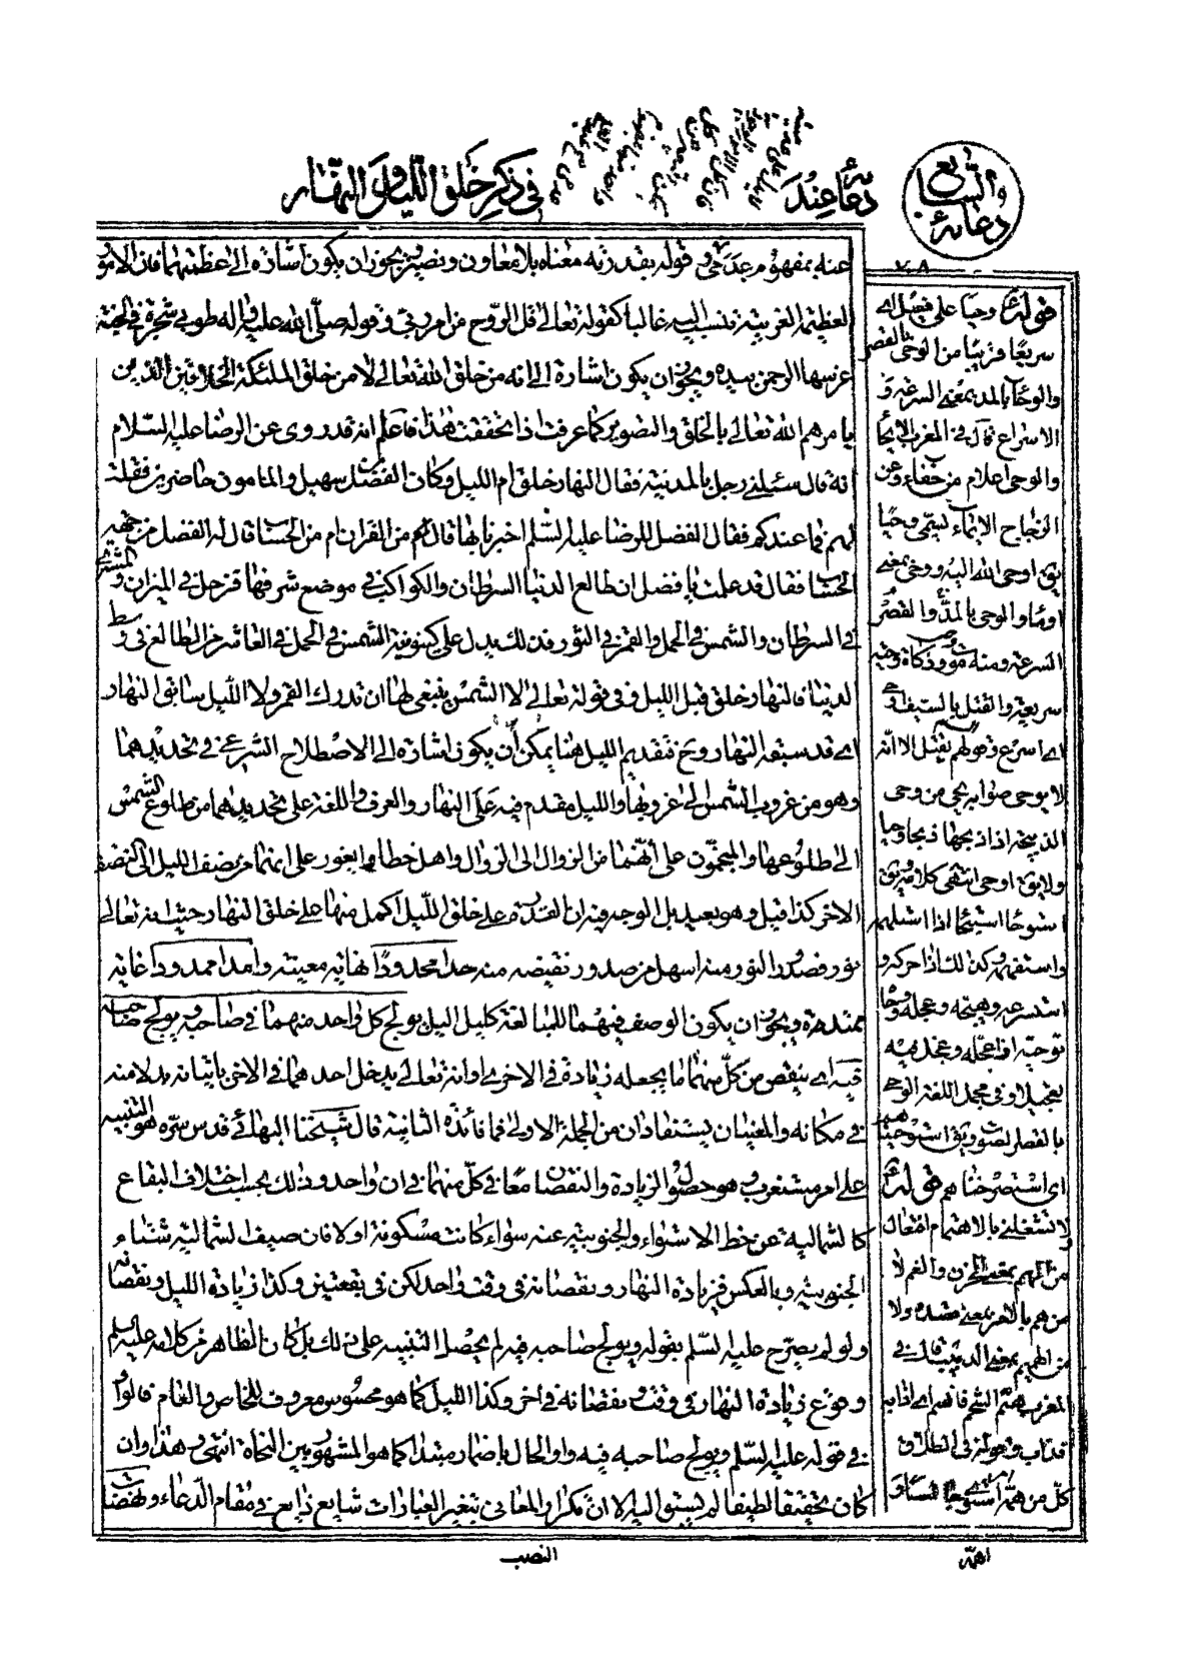 دعاؤه عند
في ذكر خلق الليل والنهار
السابع
دعائه
٧٨
عنه بمفهوم عدمي و قوله بقدرته معناه بلا معاون ونصير ويجوز ان يكون اشارة الى عظمتهما فان الامور
العظيمة الغريبة تنسب اليه غالبا كقوله تعالى قل الروح من امر ربي وقوله صلى الله عليه واله طوبى شجرة في الجنة
غرسها الرحمن بيده ويجوز ان يكون اشارة الى انه من خلق الله تعالى لا من خلق الملئكة الخلاقين الذين
يامرهم الله تعالى بالخلق والتصوير كما عرفت اذا تحققت هذا فاعلم انه قد روى عن الرضا عليه السلام
انه قال سئلني رجل بالمدينة فقال النهار خلق ام الليل وكان الفضل بن سهيل والمامون حاضرين فقلت
لهم فما عندكم فقال الفضل للرضا عليه السلم اخبرنا بها قال نعم من القران ام من الحساب قال له الفضل من جهة
الحساب فقال قد علمت يا فضل ان طالع الدنيا السرطان والكواكب في موضع شرفها فزحل في الميزان والمشتري
في السرطان والشمس في الحمل والقمر في الثور فذلك يدل على كينونية الشمس في الحمل في العاشر من الطالع في وسط
الدنيا فالنهار خلق قبل الليل وفي قوله تعالى لا الشمس ينبغي لها ان تدرك القمر ولا الليل سابق النهار
اي قد سبقه النهار وح فتقديم الليل هنا يمكن أن يكون اشارة الى الاصطلاح الشرعي في تحديدهما
وهو من غروب الشمس الى غروبها والليل مقدم فيه على النهار والعرف واللغة على تحديدهما من طلوع الشمس
الى طلوعها والمنجمون على أنهما من الزوال الى الزوال واهل خطا وايغور على انهما من نصف الليل الى النصف
الاخر كذا قيل وهو بعيد بل الوجه فيه ان القدرة على خلق الليل اكمل منها على خلق النهار حيث انه تعالى
نور فصدور النور منه اسهل من صدور نقيضه منه حدا محدودا نهاية معينة وامدا ممدودا غاية
ممتدة ويجوز ان يكون الوصف فيهما للمبالغة كليل اليل يولج كل واحد منهما في صاحبه ويولج صاحبه
فيه اي ينقص من كل منهما ما يجعله زيادة في الاخر اي اوانه تعالى يدخل احدهما في الاخر باتيانه بدلا منه
في مكانه والمعنيان يستفادان من الجملة الاولى فما فائدة الثانية قال شيخنا البهائي قدس سره هو التنبيه
على امر مستغرب وهو حصول الزيادة والنقصان معا في كل منهما في ان واحد وذلك بحسب اختلاف البقاع
كالشمالية عن خط الاستواء والجنوبية عنه سواء كانت مسكونة او لا فان صيف الشمالية شتاء
الجنوبية وبالعكس فزيادة النهار ونقصانه في وقت واحد لكن في بقعتين وكذا زيادة الليل ونقصانه
ولو لم يصرح عليه السلم بقوله ويولج صاحبه فيه لم يحصل التنبيه على ذلك بل كان الظاهر من كلامه عليه السلم
وقوع زيادة النهار في وقت ونقصانه في اخر وكذا الليل كما هو محسوس معروف للخاص والعام فالواو
في قوله عليه السلم ويولج صاحبه فيه واو الحال باضمار مبتدا كما هو المشهور بين النحاة انتهى وهذا وان
كان تحقيقا لطيفا لم يسبق اليه الا ان تكرار المعاني بتغير العبارات شايع ذايع في مقام الدعاء
النصب
قوله وحيا على فعيل اي
سريعا قريبا من الوحى بالقصر
والوحاء بالمد بمعنى السرعة و
الاسراع قال في المغرب الايحاء
والوحى اعلام من خفاء وعن
الزجاج الايماء يسمى وحيا
يق اوحى الله اليه ووحى بمعنى
اومأ والوحى بالمد والقصر
السرعة ومنه موت وحي وذكاة وحية
سريعة والقتل بالسيف اوحى
اي اسرع وقولهم يقتل الا انه
لا يوحى صوابه يحى من وحى
الذبيحة اذا ذبحها ذبحا وحيا
ولا يق اوحى انتهى كلامه يق
استوحاه استيحاء اذا استلهمه
واستفهمه وكذلك اذا حركه و
توحية اذا عجله
تعجيلا وفي مجمل اللغة الوحى
بالقصر لصوت ويق استوحيناهم
اى استصرخناهم قوله
لا تشغلني بالاهتمام افتعال
من الهم بمعنى الحزن والغم لا
من هم بالامر بمعنى قصده ولا
من الهميم بمعنى الدبيب قال في
المغرب هم الشحم فانهم اي اذابه
فذاب وقوله في الطلاق
كل من همه
اهمه